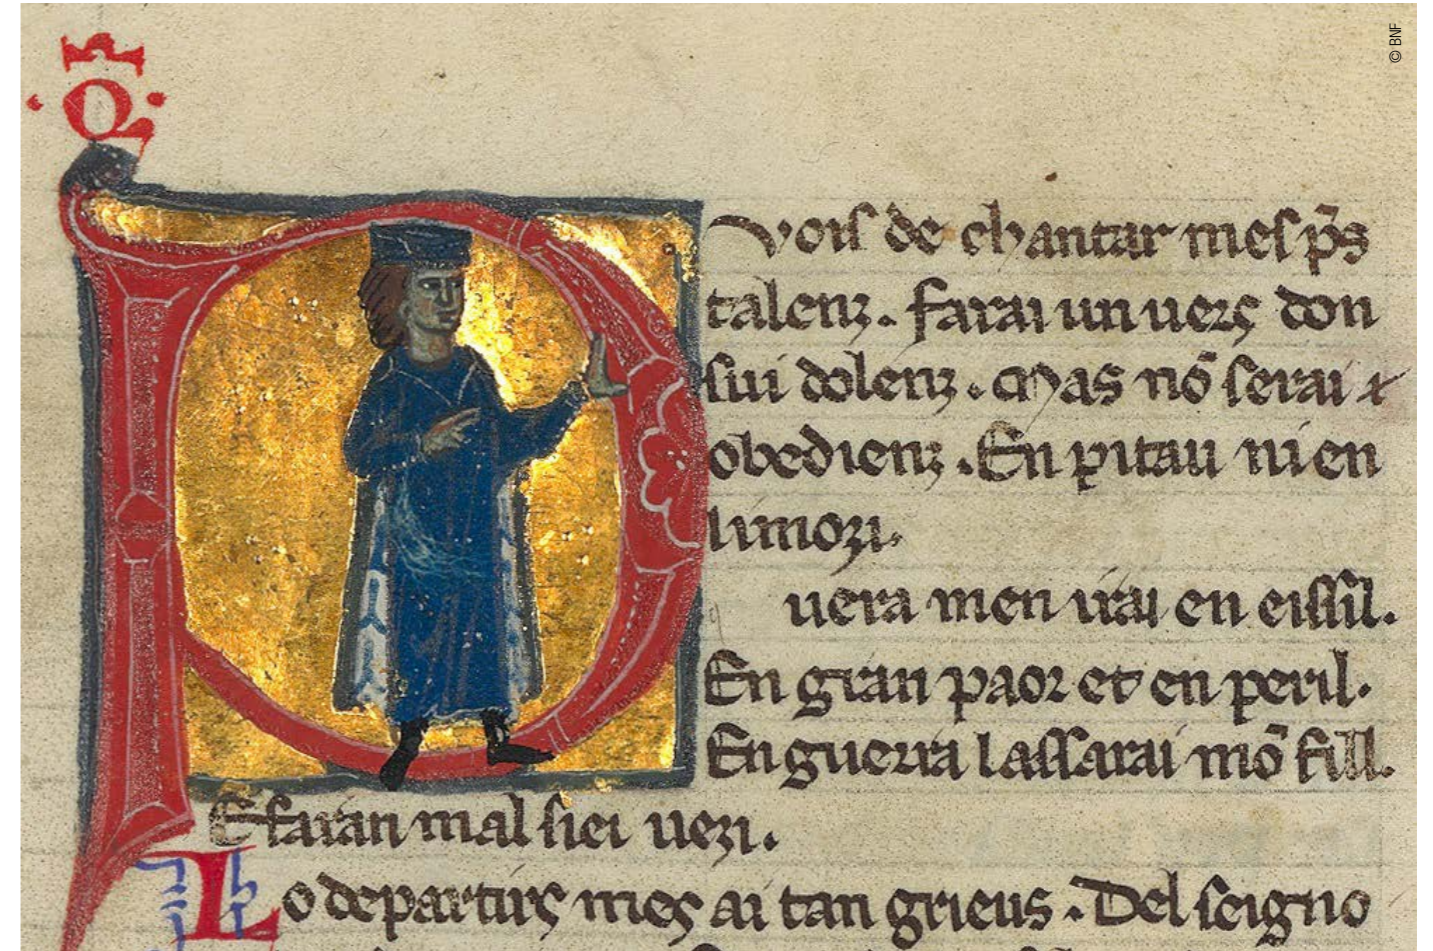 © BNF
Pvois de chantar mes p̄s
talenz. farai un uers don
sui dolenz. Mas nō serai
obedienz. En pitau ni en
limozi.
uera men irai en eissil.
En gran paor et en peril.
En guerra lassarai mō fill.
E faran mal siei uezi.
Lo departirs mes ai tan grieus. Del seigno